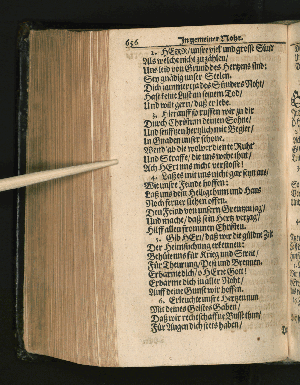 656 In gemeiner Noht.
2. HErr/ unsre viel und grosse Sünd
Als welche nicht zu zählen/
Uns leid von Grund des Hertzens sind:
Sey gnädig unser Seelen.
Dich jammert ja des Sünders Noht/
Hast keine Lust an seinem Tod/
Und wilt gern/ daß er lebe.
3. Hierauff so ruffen wir zu dir
Durch Christum deinen Sohne/
Und seufftzen hertzlich mit Begier/
In Gnaden unser schone.
Wend ab die wolverdiente Ruht
Und Straffe/ die uns wehe thut/
Ach HErr uns nicht verstosse!
4. Laß es mit uns nicht gar seyn aus/
Wie unsre Feinde hoffen:
Laß uns dein Heiligthum und Haus
Noch ferner stehen offen.
Den Feind von unsern Grentzen jag/
Und mache/ daß sein Hertz verzag/
Hilff allen frommen Christen.
5. Gib HErr/ daß wir die güldne Zeit
Der Heimsuchung erkennen:
Behüte uns für Krieg und Streit/
Für Theurung/ Pest und Brennen.
Erbarme dich/ o HErre Gott!
Erbarme dich in aller Noht/
Auff deine Gunst wir hoffen.
6. Erleuchte unsre Hertzen nun
Mit deines Geistes Gaben/
Daß wir rechtschaffne Busse thun/
Für Augen dich stets haben/